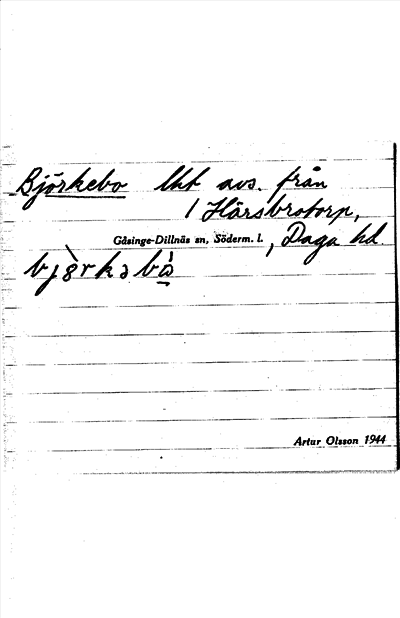 Björkebo lht avs. från
1 Hårsbrotorp,
Gåsinge-Dillnäs sn, Söderm. l., Daga hd.
Artur Olsson 1944